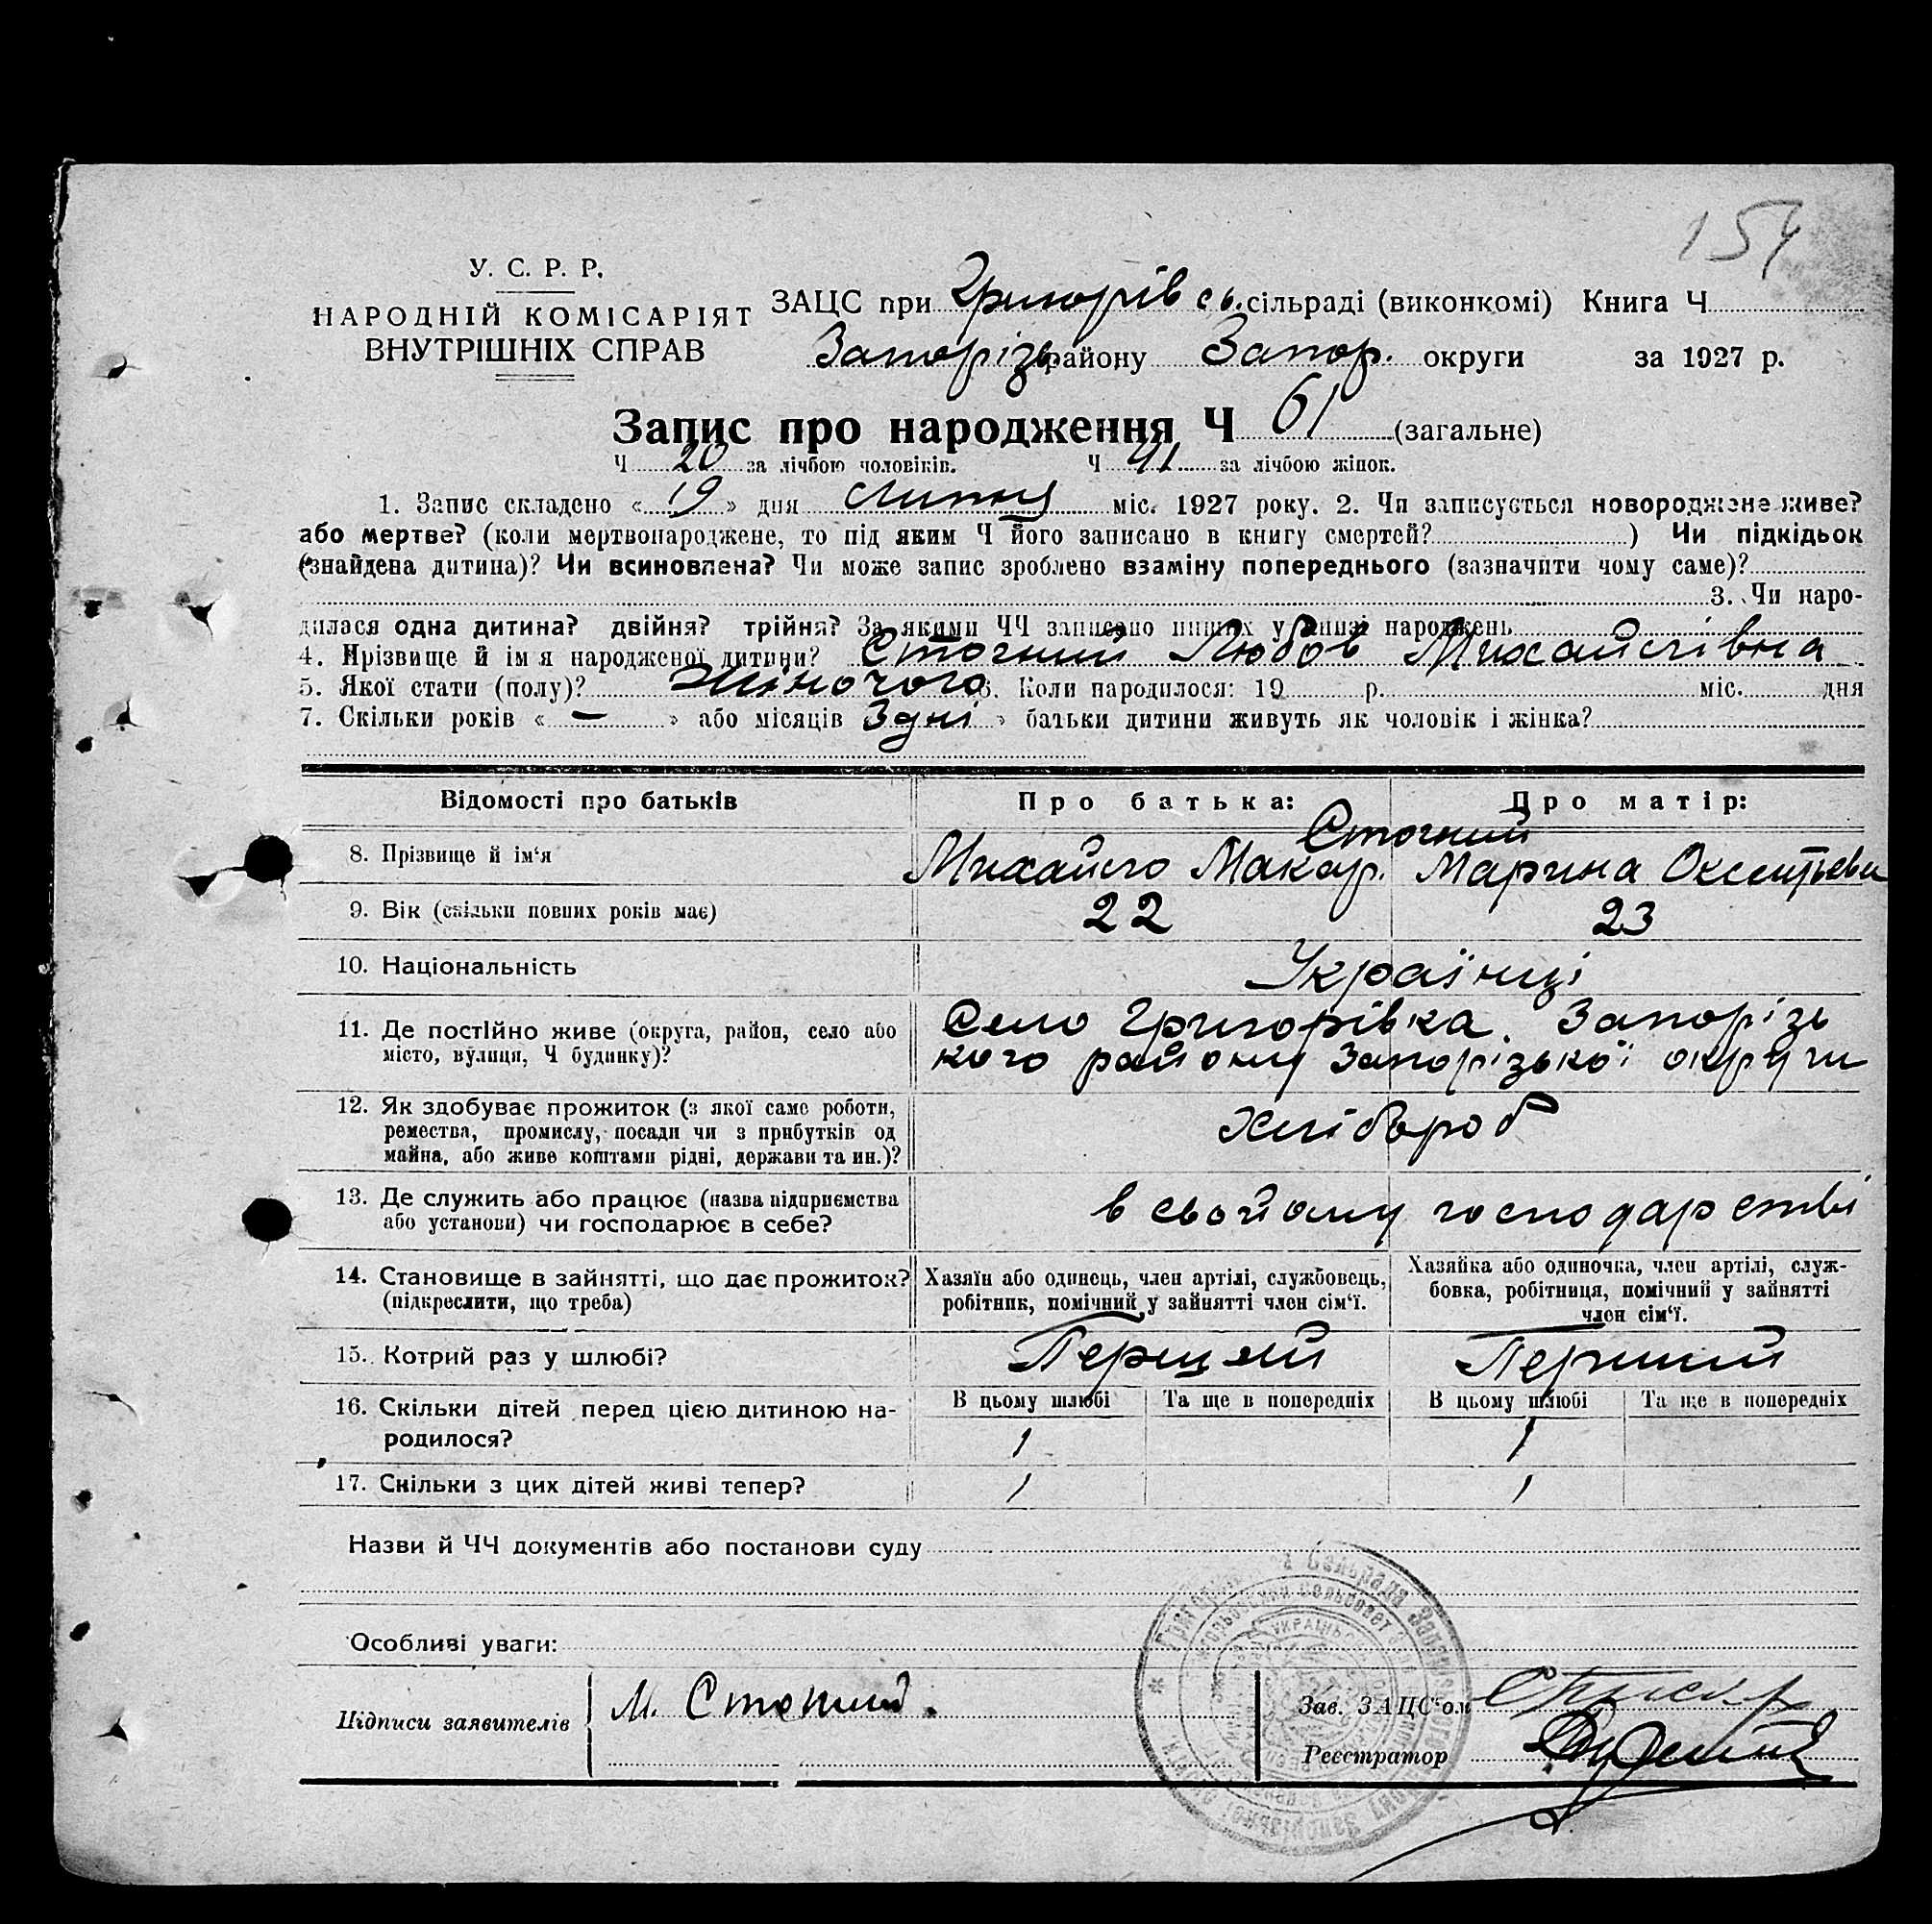 154
У. С. Р. Р.
НАРОДНІЙ КОМІСАРІЯТ
ВНУТРІШНІХ СПРАВ
ЗАЦС при Григорівсь. сільраді (виконкомі) Книга Ч
Запорізь району Запор. округи за 1927 р.
Запис про народження Ч 61 (загальне)
Ч 20 за лічбою чоловіків. Ч 41 за лічбою жінок.
1. Запис складено « 19 » дня Липня міс. 1927 року. 2. Чи записується новороджене живе?
або мертве? (коли мертвонароджене, то під яким Ч його записано в книгу смертей? ) Чи підкідьок
(знайдена дитина)? Чи всиновлена? Чи може запис зроблено взаміну попереднього (зазначити чому саме)?
3. Чи наро-
дилася одна дитина? двійня? трійня? За якими ЧЧ записано інших у книзі народжень
4. Прізвище й ім я народженої дитини? Стогний Любов Михайлівна
5. Якої стати (полу)? жіночого 6. Коли народилося: 19 р. міс. дня
7. Скільки років « — » або місяців 3 дні » батьки дитини живуть як чоловік і жінка?
Відомості про батьків Про батька: Про матір:
Стогний
8. Прізвище й ім‘я Михайло Макар. Марина Оксентьевн
9. Вік (скільки повних років має) 22 23
10. Національність Українці
11. Де постійно живе (округа, район, село або
місто, вулиця, Ч будинку)?
Село Григорівка. Запорізь
кого району Запорізької округи
12. Як здобуває прожиток (з якої саме роботи,
ремества, промислу, посади чи з прибутків од
майна, або живе коштами рідні, держави та ин.)?
Хлібороб
13. Де служить або працює (назва підприємства
або установи) чи господарює в себе?
в свойому господарстві
14. Становище в зайнятті, що дає прожиток?
(підкреслити, що треба)
Хазяїн або одинець, член артілі, службовець,
робітник, помічний у зайнятті член сім‘ї.
Хазяйка або одиночка, член артілі, служ-
бовка, робітниця, помічний у зайнятті
член сім‘ї.
15. Котрий раз у шлюбі? Перший Перший
16. Скільки дітей перед цією дитиною на-
родилося?
В цьому шлюбі Та ще в попередніх В цьому шлюбі Та ще в попередніх
1 1
17. Скільки з цих дітей живі тепер? 1 1
Назви й ЧЧ документів або постанови суду
Особливі уваги:
Підписи заявителів М. Стогний.
Зав. ЗАЦС‘ом
Реєстратор